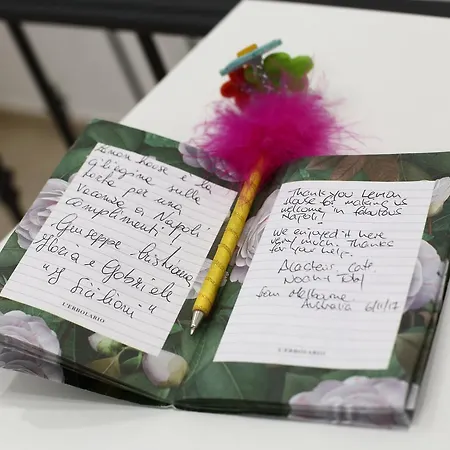 Lemon house è la
ciliegina sulla
torta per una
vacanza a Napoli
complimenti!
Giuseppe Cristiana
Gloria e Gabriele
"I Siciliani"
L'ERBOLARIO
Thank you Lemon
House for making us
welcome in fabulous
Napoli!
We enjoyed it here
very much. Thanks
for your help.
Cate
from Melbourne
Australia 6/11/17
L'ERBOLARIO